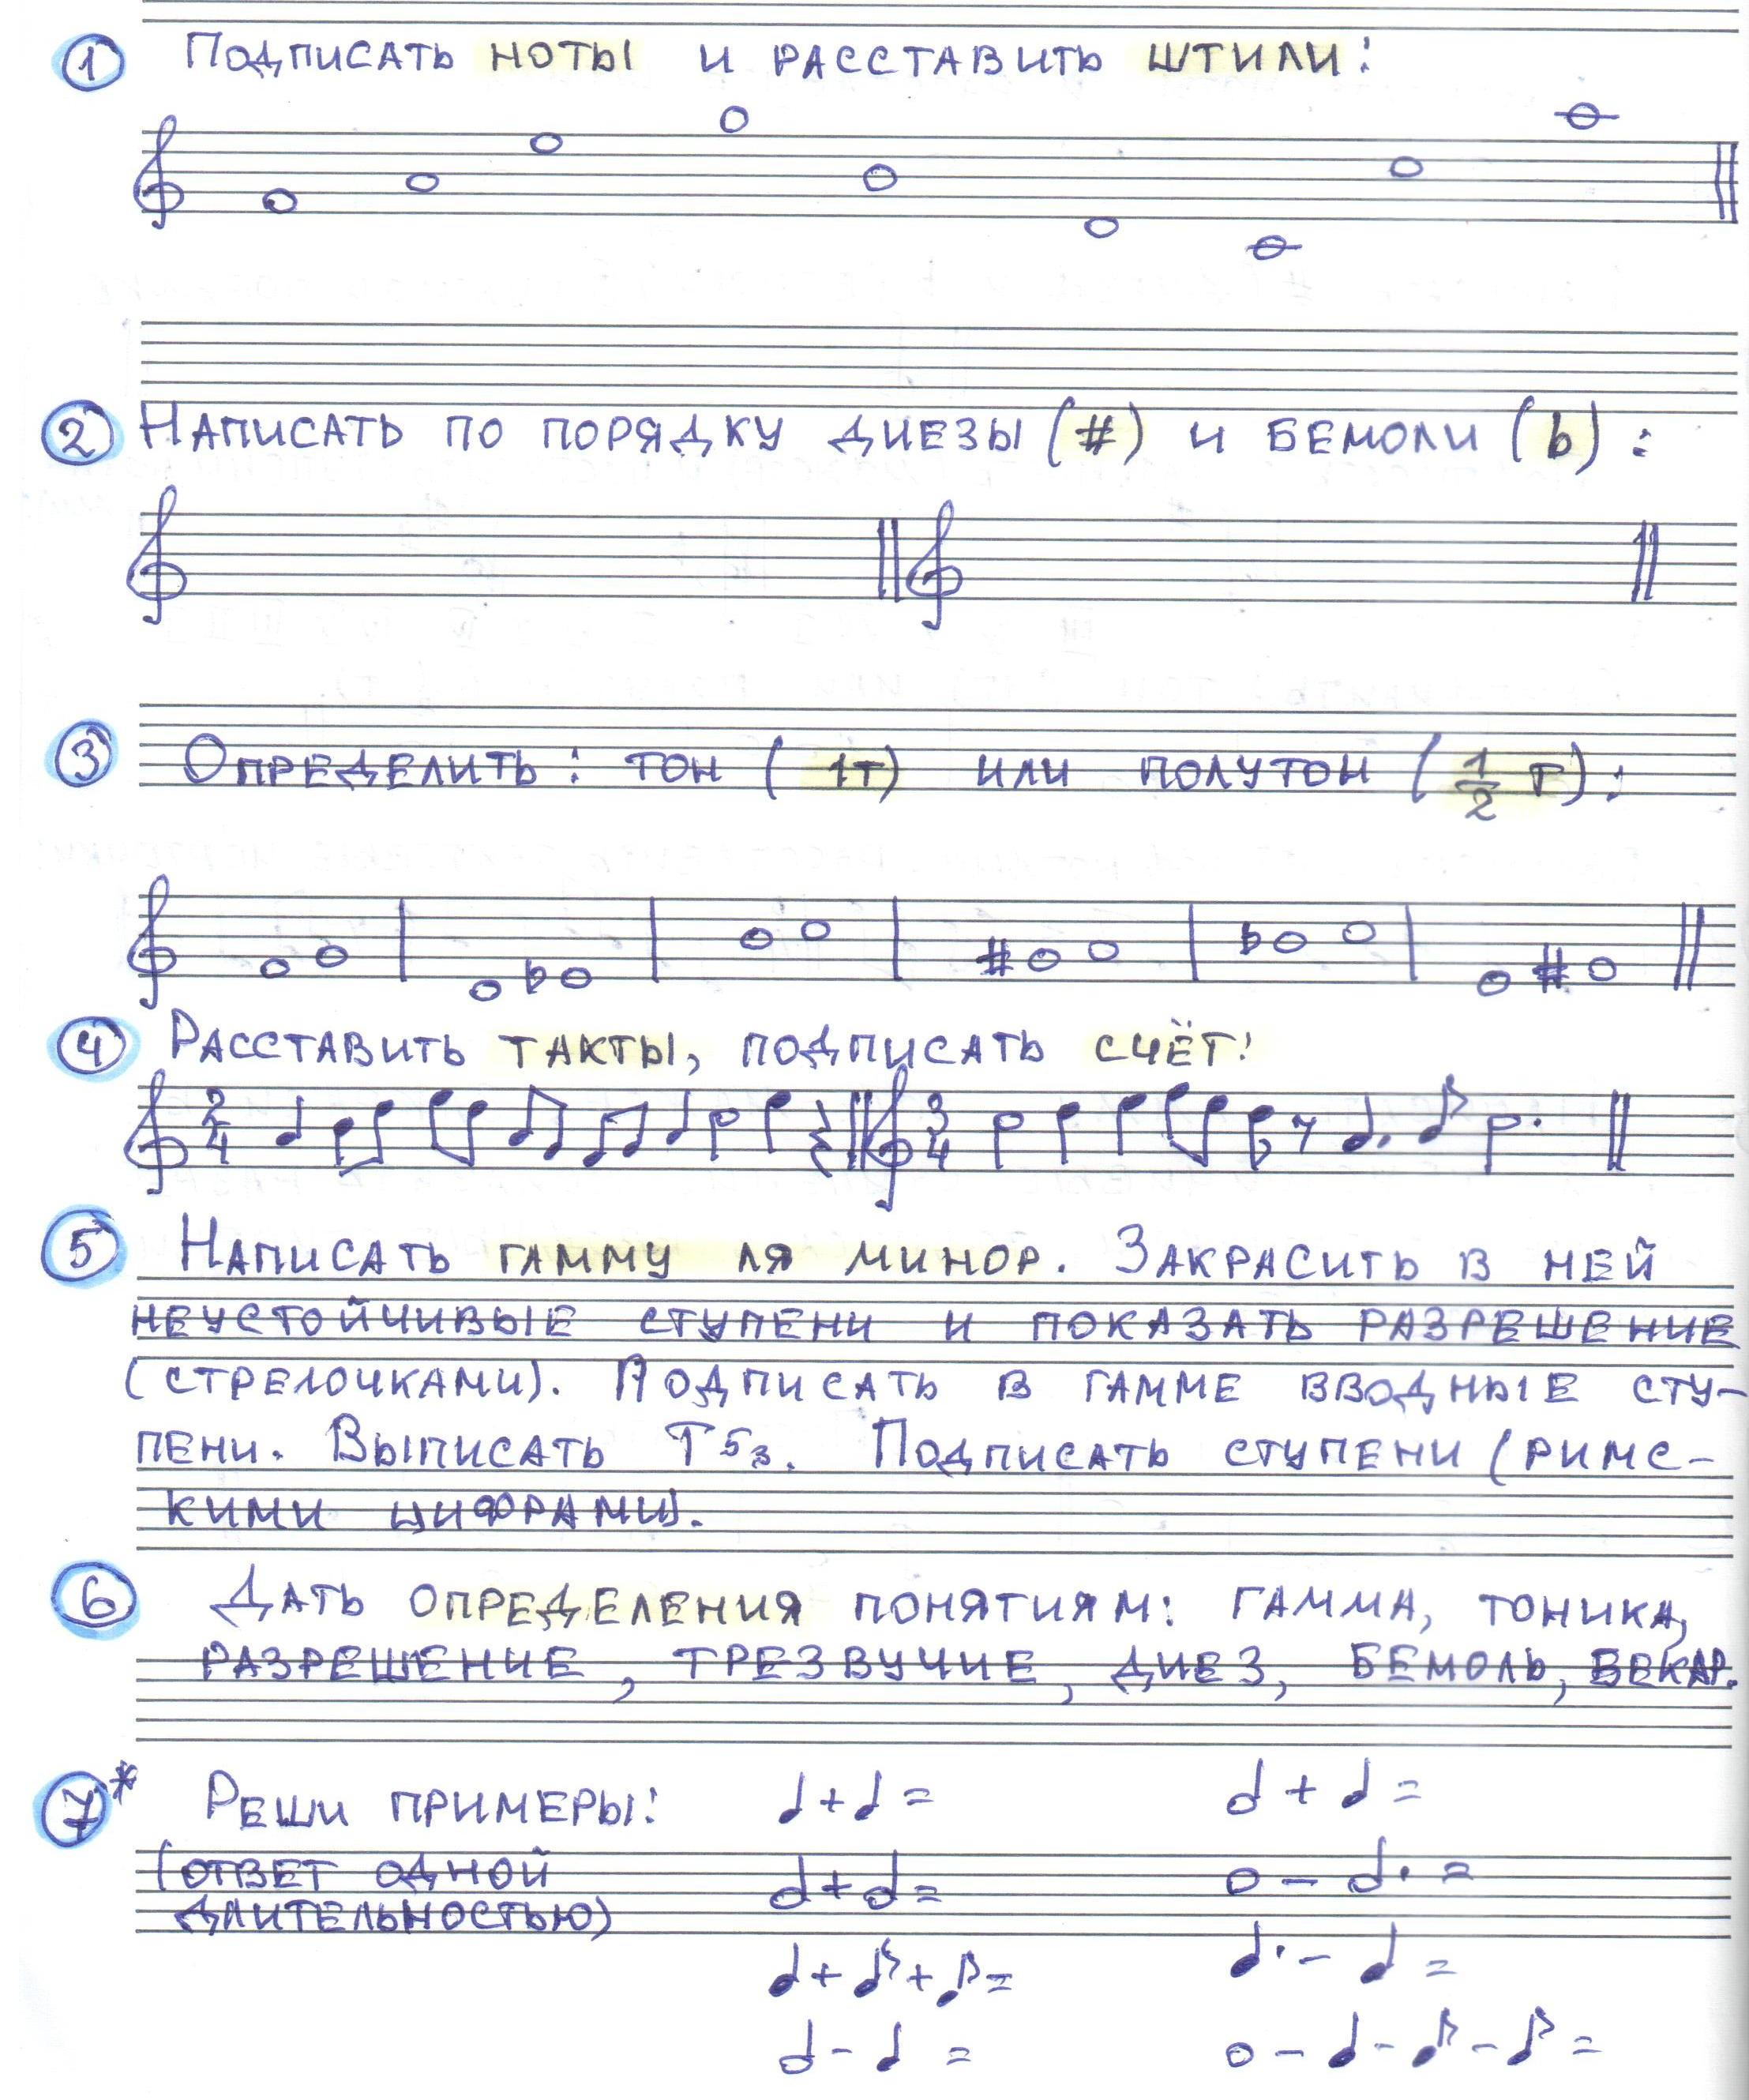 1 Подписать ноты и расставить штили:
2 Написать по порядку диезы (#) и бемоли (b):
3 Определить: тон (1т) или полутон (1/2 т):
4 Расставить такты, подписать счёт:
2/4 3/4
5 Написать гамму ля минор. Закрасить в ней
неустойчивые ступени и показать разрешение
(стрелочками). Подписать в гамме вводные сту-
пени. Выписать Т53. Подписать ступени (римс-
кими цифрами).
6 Дать определения понятиям: гамма, тоника,
разрешение, трезвучие, диез, бемоль, бекар.
7* Реши примеры: ♩ + ♩ = 𝅗𝅥 + ♩ =
(ответ одной 𝅗𝅥 + 𝅗𝅥 = 𝅝 - 𝅗𝅥. =
длительностью)
♩ + ♪ + ♪ = ♩. - ♩ =
𝅗𝅥 - ♩ = 𝅝 - ♩ - ♪ - ♪ =